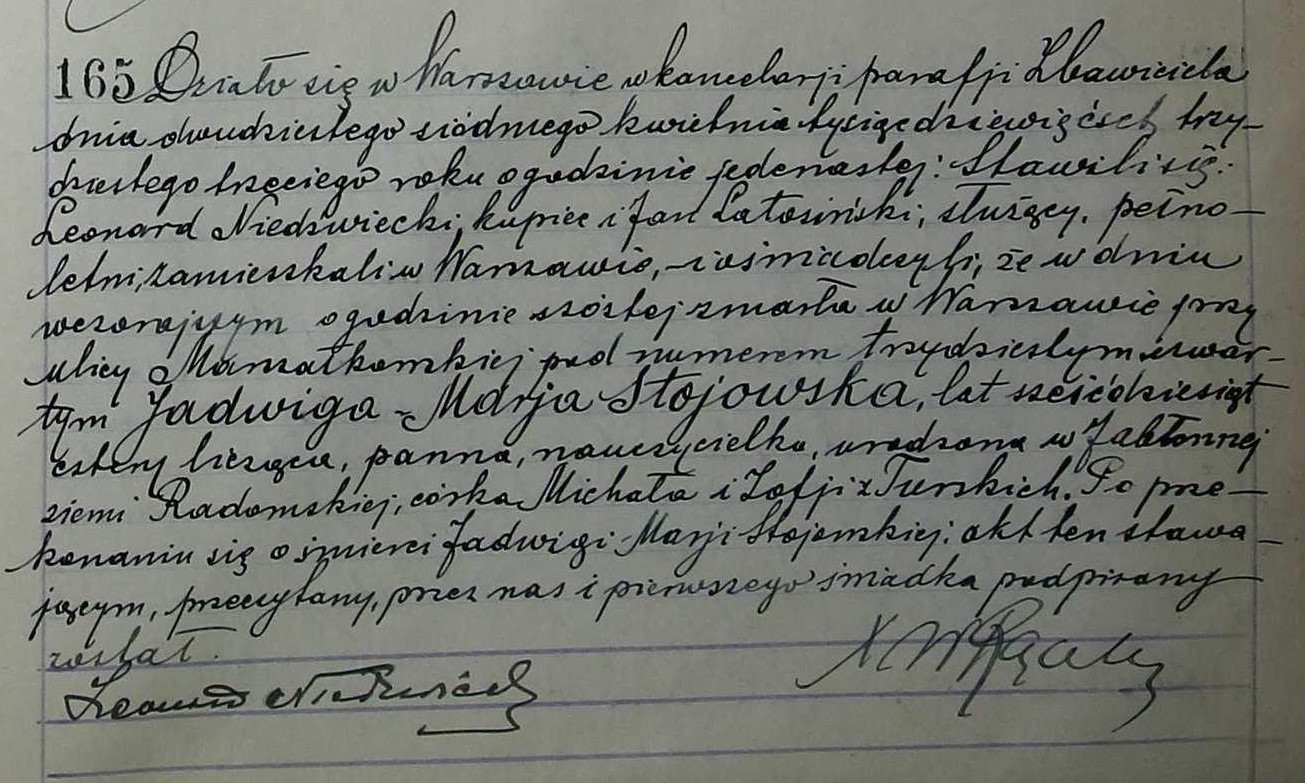 165 Działo się w Warszawie w kancelarji parafji Zbawiciela
dnia dwudziestego siódmego kwietnia tysiąc dziewięćset trzy-
dziestego trzeciego roku o godzinie jedenastej: Stawili się:
Leonard Niedźwiecki, kupiec i Jan Latosiński, służący, pełno-
letni, zamieszkali w Warszawie, - i oświadczyli, że w dniu
wczorajszym o godzinie szóstej zmarła w Warszawie przy
ulicy Marszałkowskiej pod numerem trzydziestym czwar-
tym Jadwiga - Marja Stojowska, lat sześćdziesiąt
cztery licząca, panna, nauczycielka, urodzona w Jabłonnej
ziemi Radomskiej, córka Michała i Zofji z Turskich. Po prze-
konaniu się o śmierci Jadwigi Marji Stojowskiej; akt ten stawa-
jącym, przeczytany, przez nas i pierwszego świadka podpisany
został.
Leonard Niedźwiecki